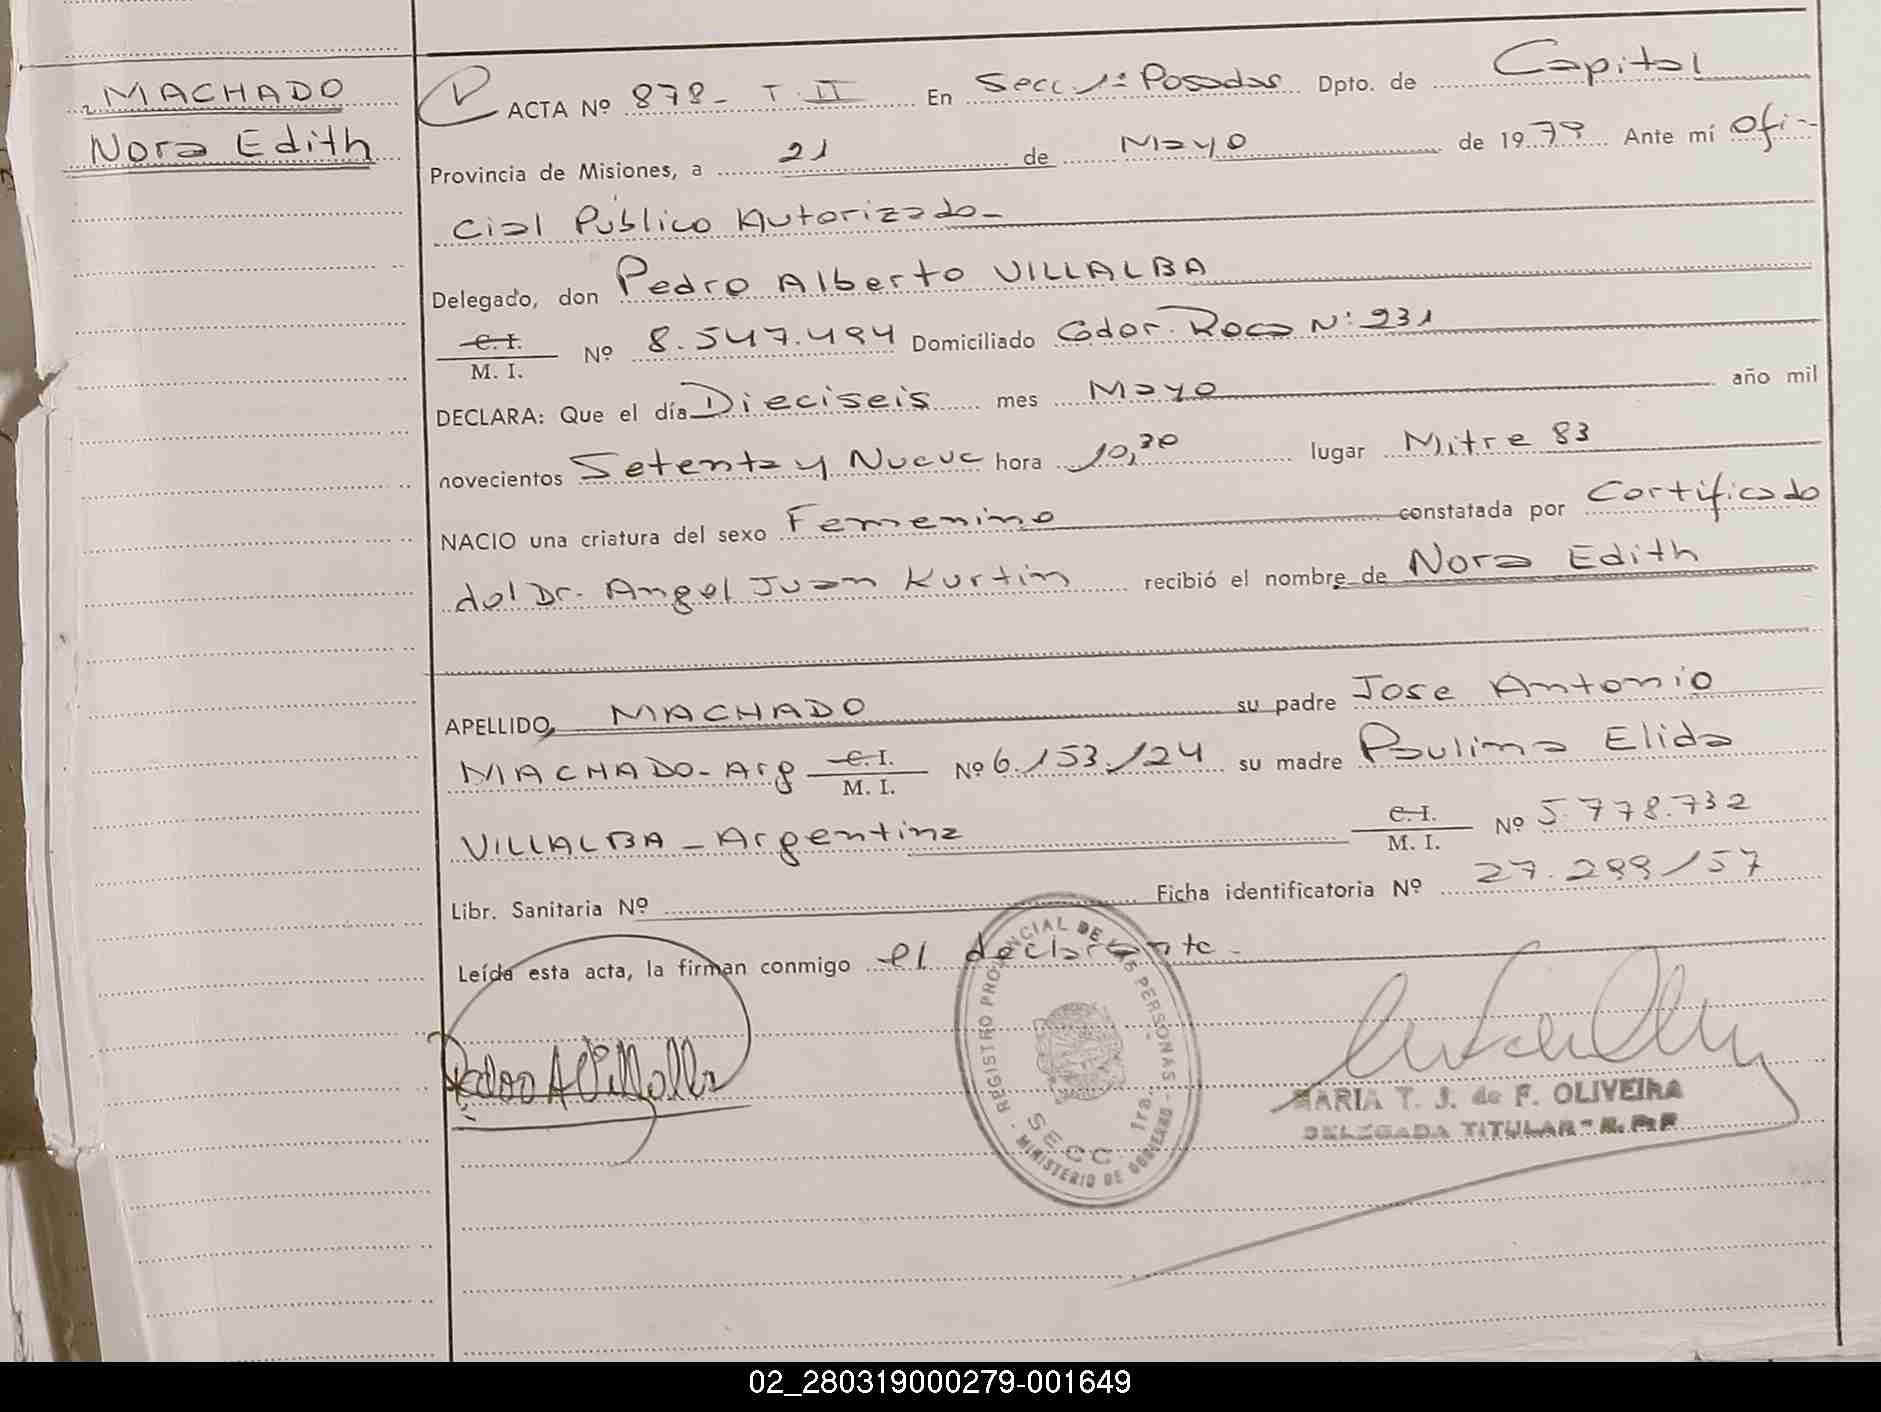 MACHADO
Nora Edith
ACTA Nº 878- T. II En Secc. 1ª Posadas Dpto. de Capital
Provincia de Misiones, a 21 de Mayo de 1979 Ante mí Ofi-
cial Público Autorizado-
Delegado, don Pedro Alberto VILLALBA
C. I.
M. I. Nº 8.547.494 Domiciliado Gdor. Roca Nº: 231
DECLARA: Que el día Dieciseis mes Mayo año mil
novecientos Setenta y Nueve hora 10,30 lugar Mitre 83
NACIO una criatura del sexo Femenino constatada por Certificado
del Dr. Angel Juan Kurtin recibió el nombre de Nora Edith
APELLIDO, MACHADO su padre Jose Antonio
MACHADO- Arg C. I.
M. I. Nº 6.153.124 su madre Paulina Elida
VILLALBA - Argentina C. I.
M. I. Nº 5.778.732
Libr. Sanitaria Nº Ficha identificatoria Nº 27.299/57
Leída esta acta, la firman conmigo el declarante -
Pedro A Villalba
REGISTRO PROVINCIAL DE LAS PERSONAS - MINISTERIO DE GOBIERNO -
SECC. 1ra.
MARIA T. J. de F. OLIVEIRA
DELEGADA TITULAR - R. P. P.
02_280319000279-001649